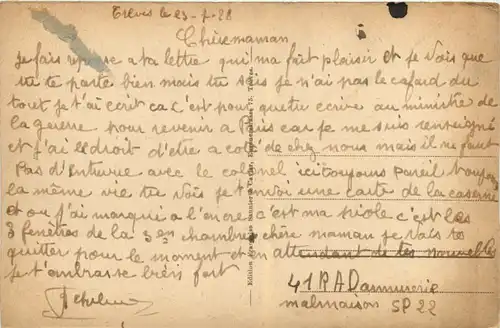 Treves le 23-7-28
Chère maman
je fais reponse a ta lettre qui ma fait plaisir et je vois que
tu te porte bien mais tu sais je n'ai pas le cafard du
tout je t'ai ecrit ca c'est pour que tu ecrive au ministre de
la guerre pour revenir a Paris car je me suis renseigné
et j'ai le droit d'etre a coté de chez nous mais il ne faut
pas d'entrevue avec le colonel ici toujours pareil toujours
la même vie tu vois je t'envoi une carte de la caserne
et ou j'ai marqué a l'encre c'est ma piole c'est les
3 fenêtres de la 3en chambre chère maman je vais te
quitter pour le moment et en attendant de tes nouvelles
je t'embrasse bien fort
41 RAD armurerie
malmaison SP 22